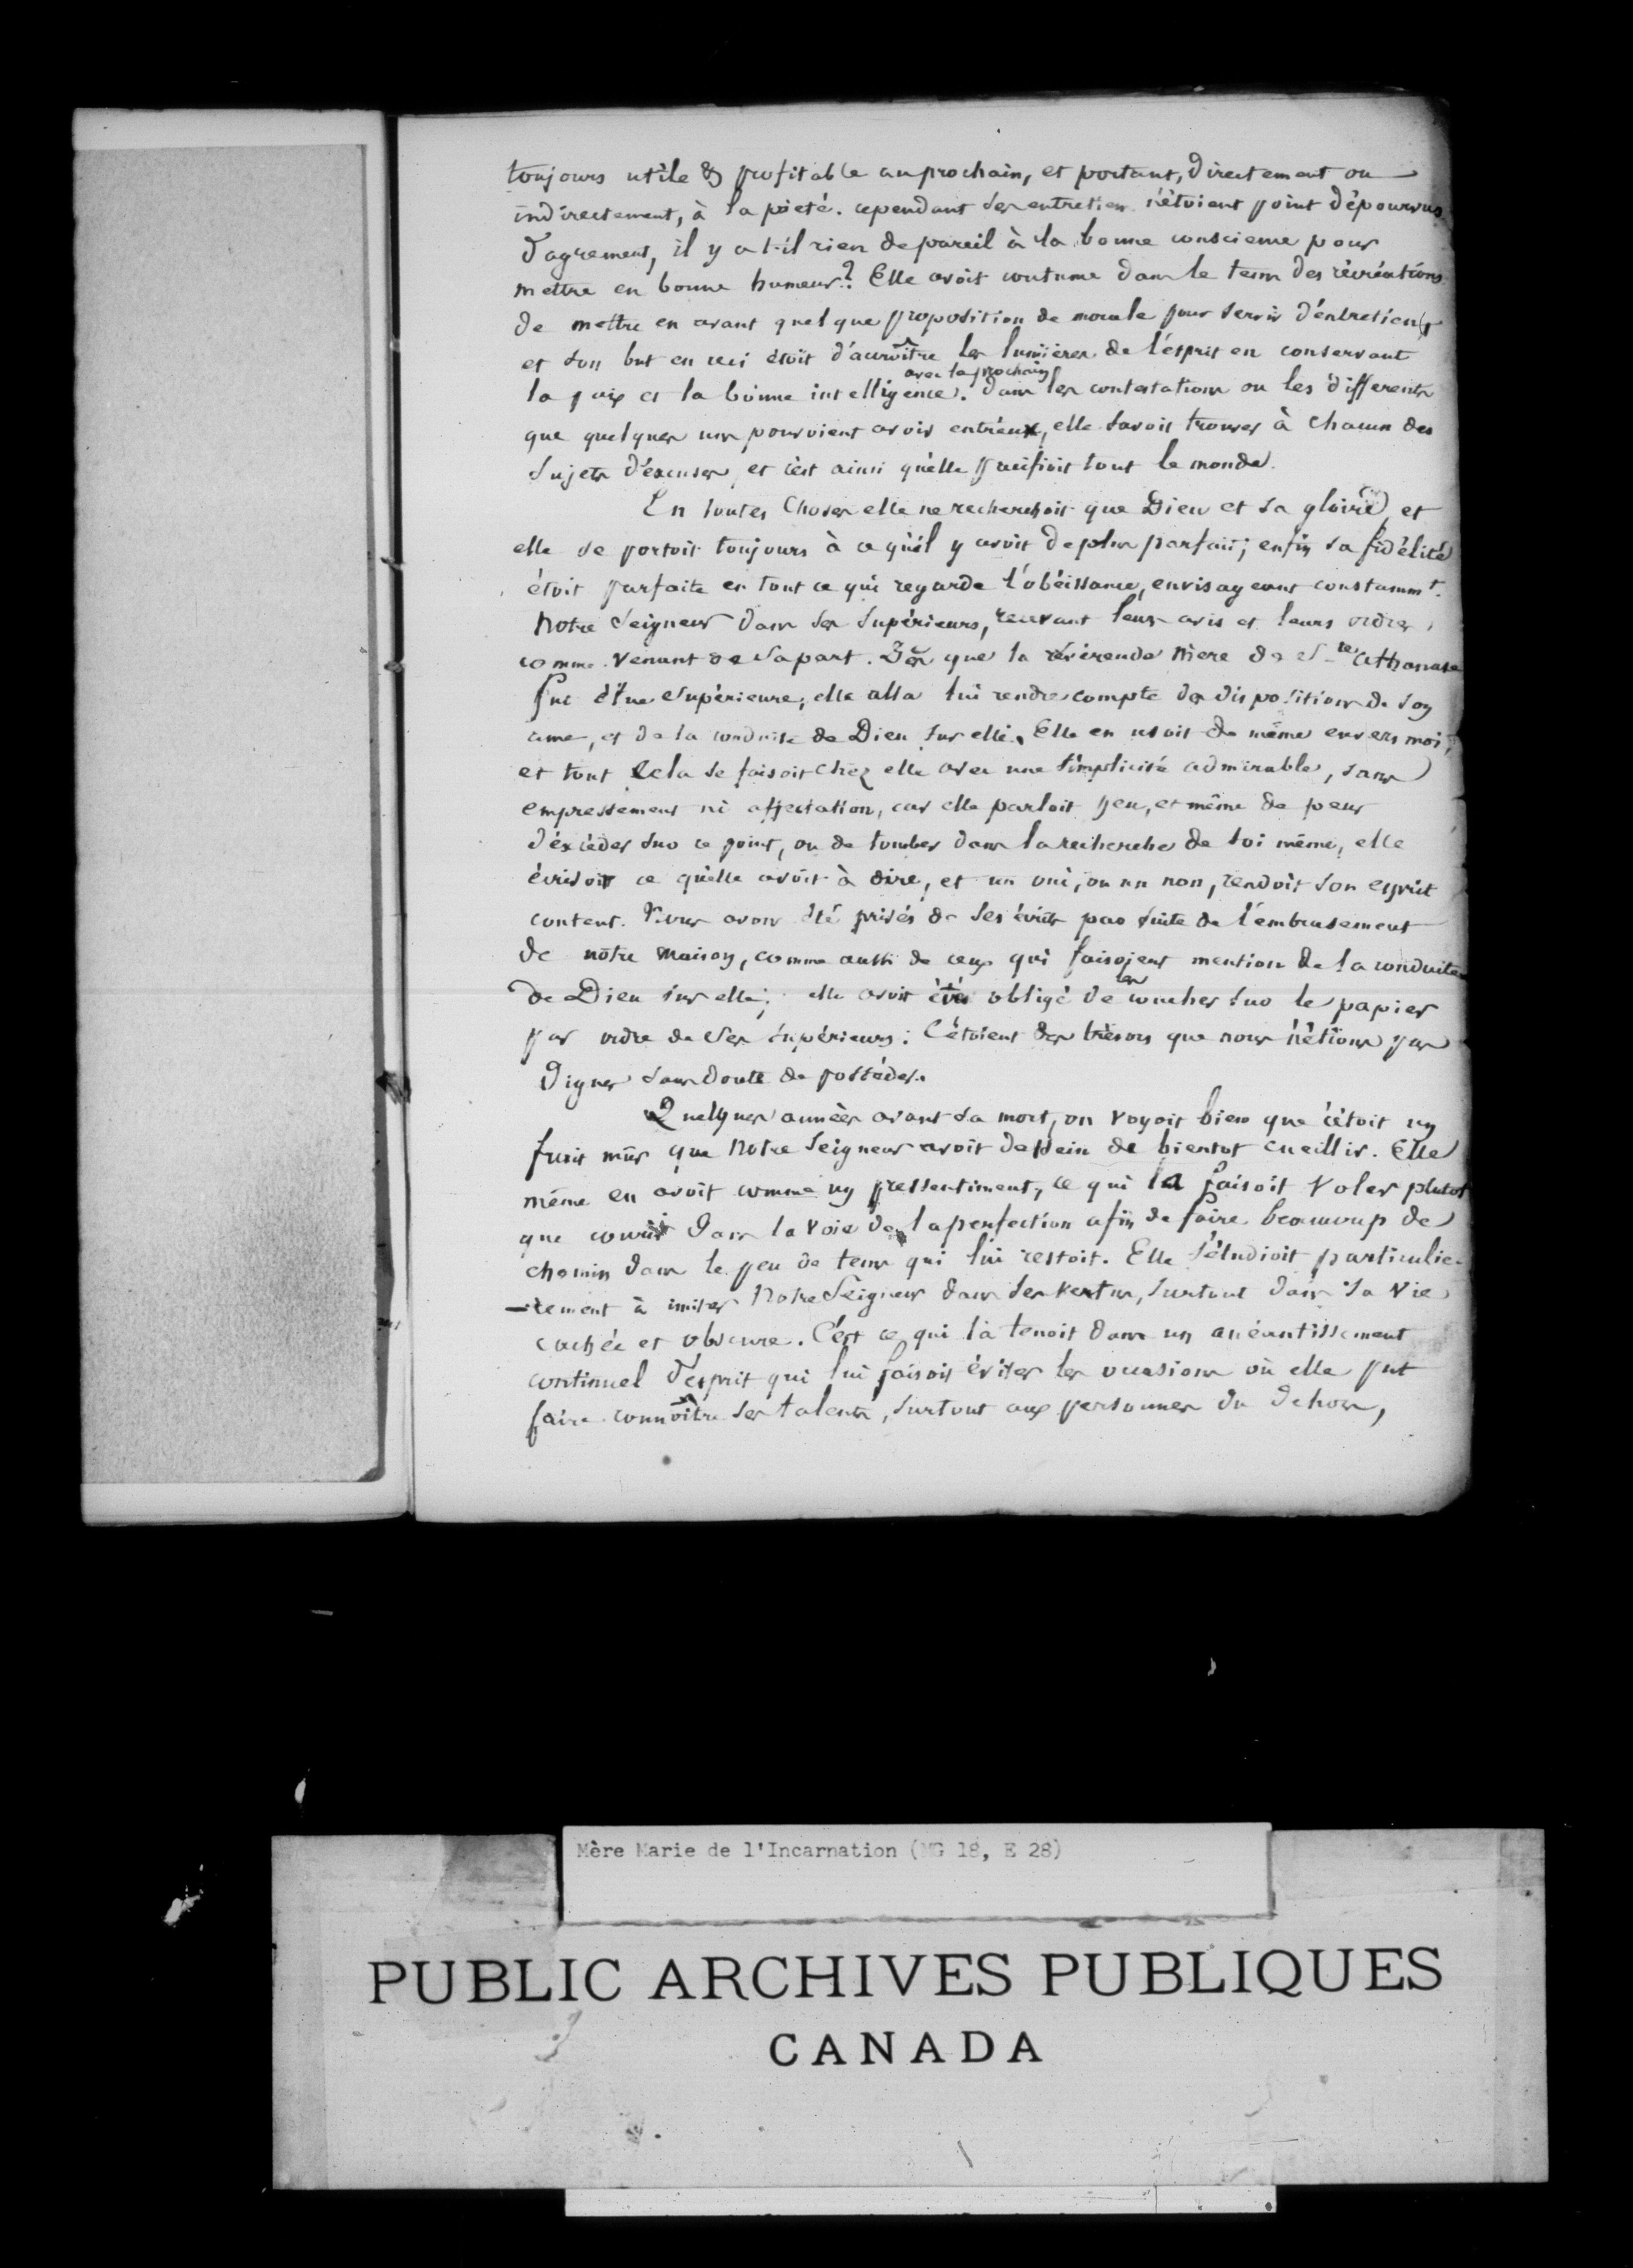 toujours utile & profitable au prochain, et portant, directement ou
indirectement, à la pieté. cependant ses entretiens n'étoient point dépourvus
d'agrement, il y a t-il rien de pareil à la bonne conscience pour
mettre en bonne humeur? Elle avoit coutume dans le tems des récréations
de mettre en avant quelque proposition de morale pour servir d'éntretien
et son but en ceci étoit d'accroître les lumières de l'ésprit en conservant
avec le prochain
la paix et la bonne intelligence. dans les contestations ou les différents
que quelques uns pouvoient avoir entréux, elle savoit trouver à chacun des
sujets d'éxcuser, et c'ést ainsi qu'elle pacifioit tout le monde.
En toutes choses elle ne recherchoit que Dieu et sa gloire, et
elle se portoit toujours à ce qu'il y avoit de plus parfait; enfin sa fidélité
étoit parfaite en tout ce qui regarde l'obéissance, envisageant constammt.
Notre Seigneur dans ses Supérieurs, recevant leurs avis et leurs ordres
comme venant de sa part. Dès que la révérende Mere de St-re Athanase
fut élue Supérieure, elle alla lui rendre compte des dispositions de son
ame, et de la conduite de Dieu sur elle. Elle en usoit de même envers moi,
et tout cela se faisoit chez elle avec une simplicité admirable, sans
empressement ni affectation, car elle parloit peu, et même de peur
d'éxcéder sur ce point, ou de tomber dans la recherche de soi même, elle
écrivoit ce qu'elle avoit à dire, et un oui, ou un non, rendoit son esprit
content. Nous avons été privés de ses écrits par suite de l'embrasement
de nôtre maison, comme aussi de ceux qui faisoient mention de la conduite
de Dieu sur elle; elle avoit été obligé de les coucher sur le papier
par ordre de ses supérieurs: C'étoient des trésors que nous n'étions pas
dignes sans doute de posséder.
Quelques années avant sa mort, on voyoit bien que c'étoit un
fruit mûr que Notre Seigneur avoit dessein de bientot cueillir. Elle
même en avoit comme un pressentiment, ce qui la faisoit voler plutot
que courir dans la voie de la perfection afin de faire beaucoup de
chemin dans le peu de tems qui lui restoit. Elle s'étudioit particulie-
-rement à imiter Notre Seigneur dans ses vertus, surtout dans sa vie
cachée et obscure. C'ést ce qui la tenoit dans un anéantissement
continuel d'esprit qui lui faisoit éviter les occasions où elle put
faire connoître ses talents, surtout aux personnes du dehors,
Mère Marie de l'Incarnation (MG 18, E 28)
PUBLIC ARCHIVES PUBLIQUES
CANADA